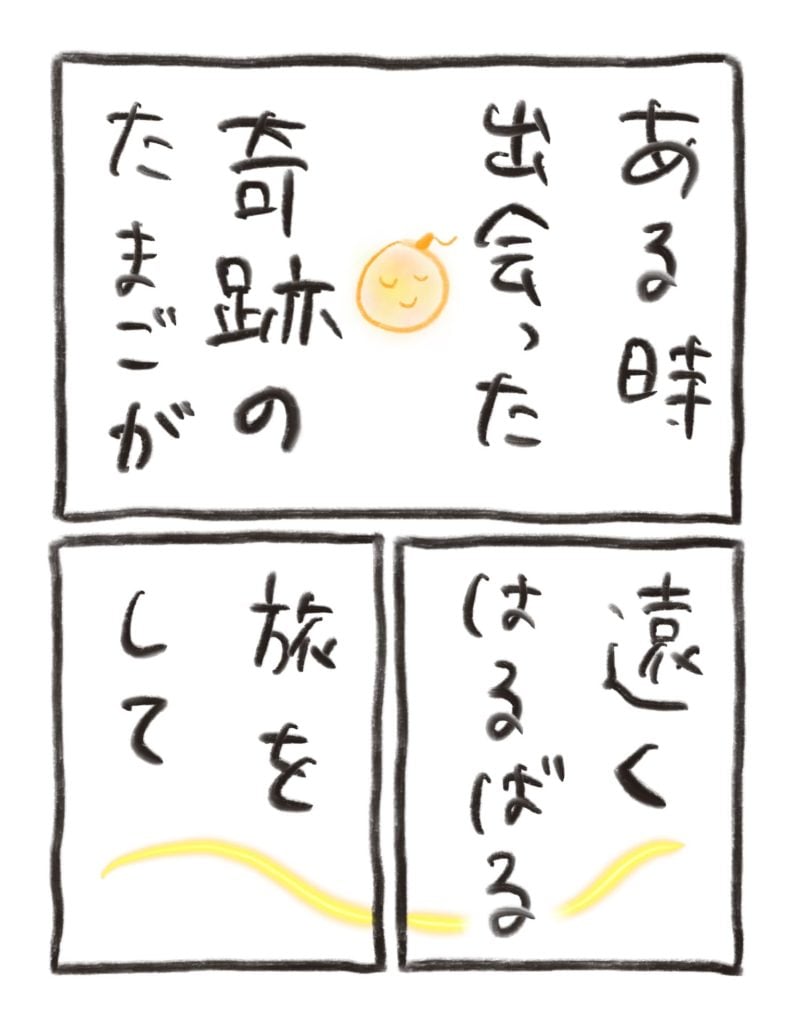 ある時
出会った
奇跡の
たまごが
遠く
はるばる
旅を
して